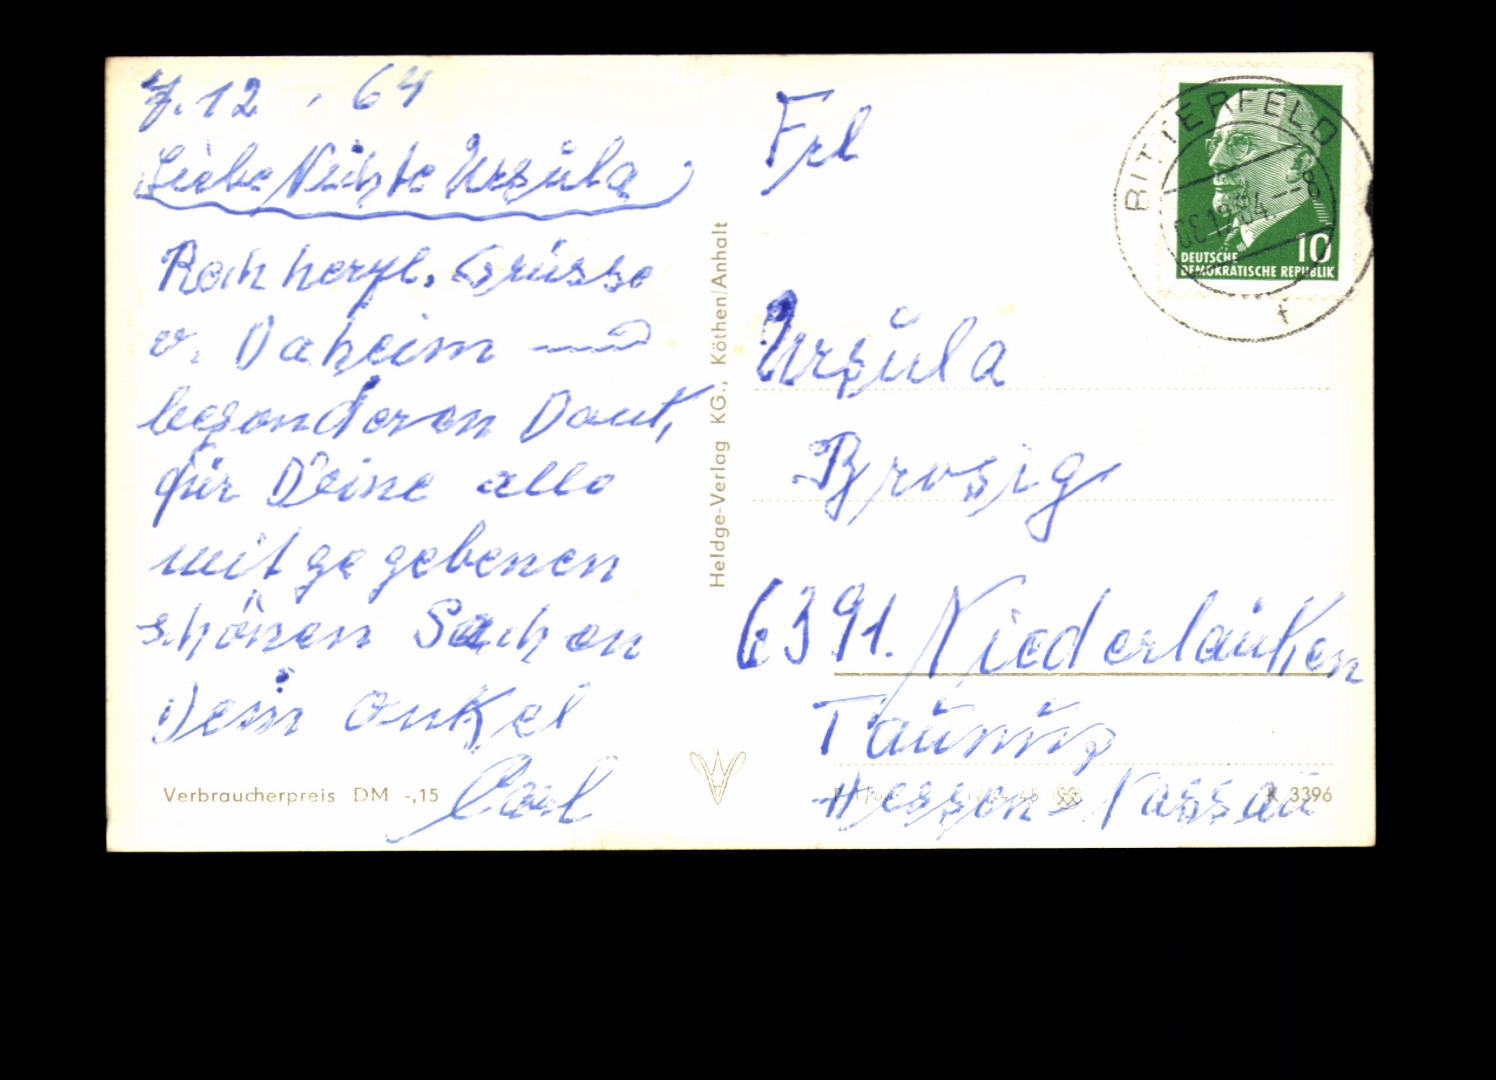 7.12. 64
Liebe Nichte Ursula
Rech herzl. Grüsse
v. Daheim
besonderen Dank,
für Deine alle
mit gegebenen
schönen Sachen
Dein Onkel
Carl
Verbraucherpreis DM -,15
Heldge-Verlag KG., Köthen/Anhalt
BITTERFELD
10
DEUTSCHE
DEMOKRATISCHE REPUBLIK
Frl
Ursula
Brosig
6391. Niederlauken
Taunus
Hessen-Nassau
K 3396